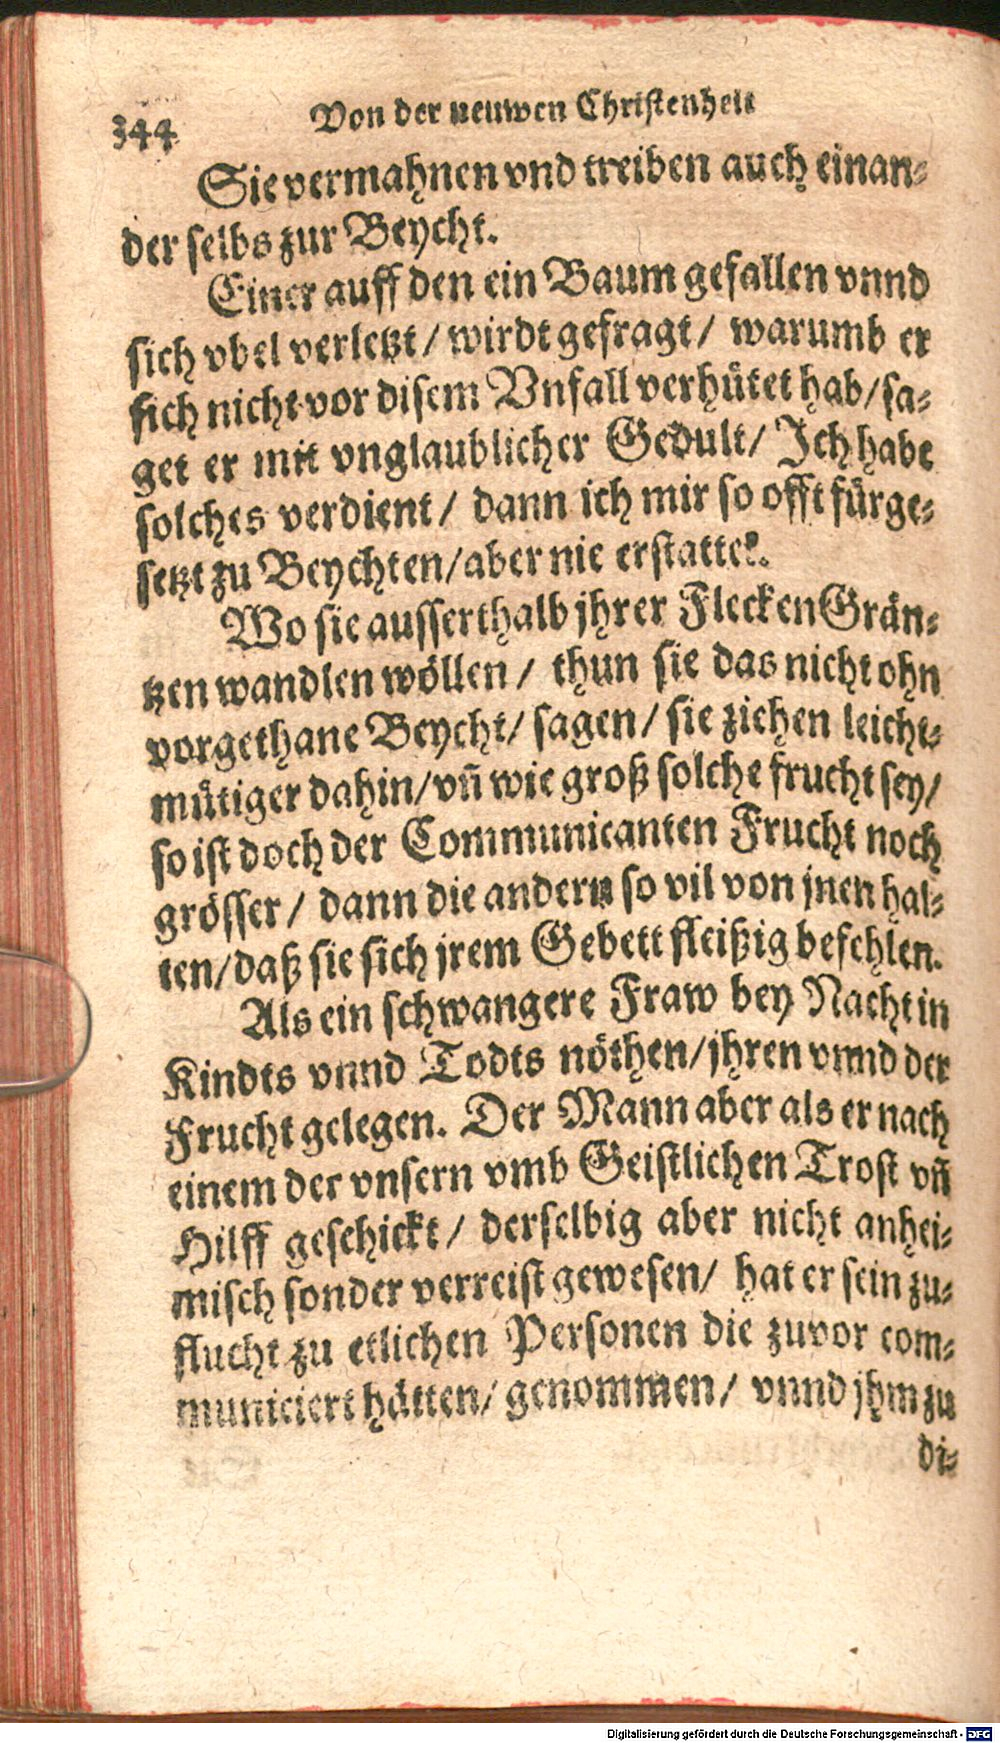 344 Von der neuwen Christenheit
Sie vermahnen vnd treiben auch einan-
der selbs zur Beycht.
Einer auff den ein Baum gefallen vnnd
sich vbel verletzt / wirdt gefragt / warumb er
sich nicht vor disem Vnfall verhütet hab / sa-
get er mit vnglaublicher Gedult / Ich habe
solches verdient / dann ich mir so offt fürge-
setzt zu Beychten / aber nie erstattet.
Wo sie ausserthalb jhrer Flecken Grän-
tzen wandlen wöllen / thun sie das nicht ohn
vorgethane Beycht / sagen / sie ziehen leicht-
mütiger dahin / vñ wie groß solche frucht sey /
so ist doch der Communicanten Frucht noch
grösser / dann die andern so vil von jnen hal-
ten / daß sie sich jrem Gebett fleißig befehlen.
Als ein schwangere Fraw bey Nacht in
Kindts vnnd Todts nöthen / jhren vnnd der
Frucht gelegen. Der Mann aber als er nach
einem der vnsern vmb Geistlichen Trost vñ
Hilff geschickt / derselbig aber nicht anhei-
misch sonder verreist gewesen / hat er sein zu-
flucht zu etlichen Personen die zuvor com-
municiert hätten / genommen / vnnd jhm zu
di-
Digitalisierung gefördert durch die Deutsche Forschungsgemeinschaft - DFG